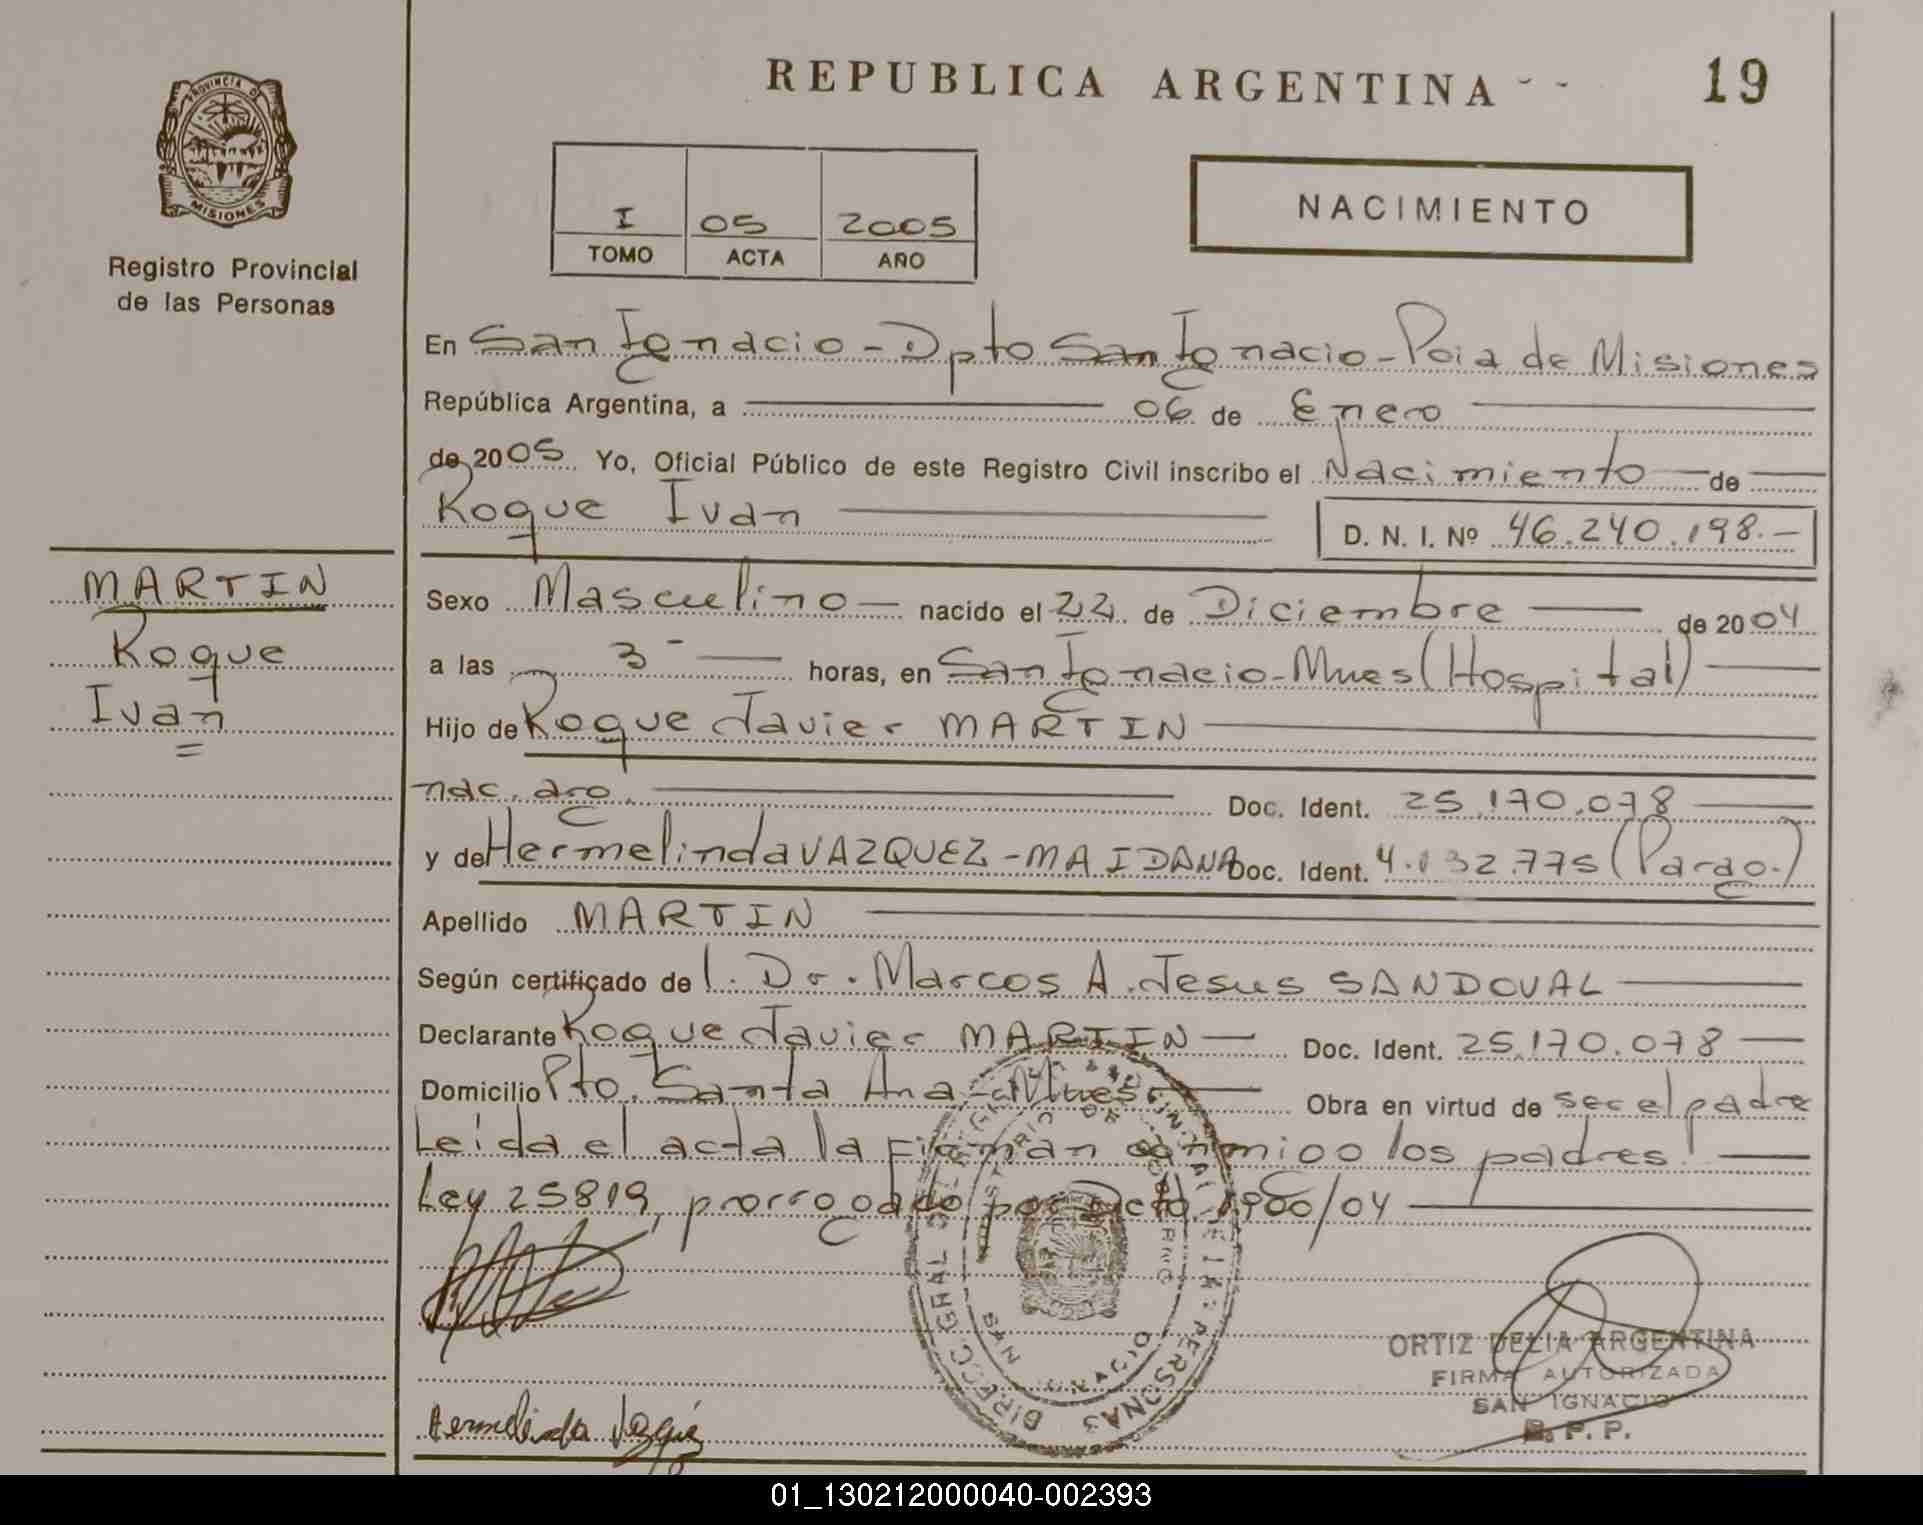 REPUBLICA ARGENTINA - -
19
PROVINCIA DE
MISIONES
Registro Provincial
de las Personas
I 05 2005
TOMO ACTA AÑO
NACIMIENTO
En San Ignacio - Dpto San Ignacio - Pcia de Misiones
República Argentina, a 06 de Enero
de 2005 Yo, Oficial Público de este Registro Civil inscribo el Nacimiento de
Roque Ivan
D. N. I. Nº 46.240.198.-
MARTIN
Roque
Ivan
Sexo Masculino nacido el 22 de Diciembre de 2004
a las 3 - horas, en San Ignacio - Mnes (Hospital)
Hijo de Roque Javier MARTIN
nac. arg. Doc. Ident. 25.170.078
y de Hermelinda VAZQUEZ - MAIDANA Doc. Ident. 4.132.775 (Parag.)
Apellido MARTIN
Según certificado de l. Dr. Marcos A. Jesus SANDOVAL
Declarante Roque Javier MARTIN Doc. Ident. 25.170.078
Domicilio Pto. Santa Ana - Mnes Obra en virtud de ser el padre
Leida el acta la firman conmigo los padres!
Ley 25819, prorrogado por Dcto
/04
DIRECC GRAL
PERSONAS
ORTIZ DELIA ARGENTINA
FIRMA AUTORIZADA
SAN IGNACIO
R. P. P.
Hermelinda
01_130212000040-002393